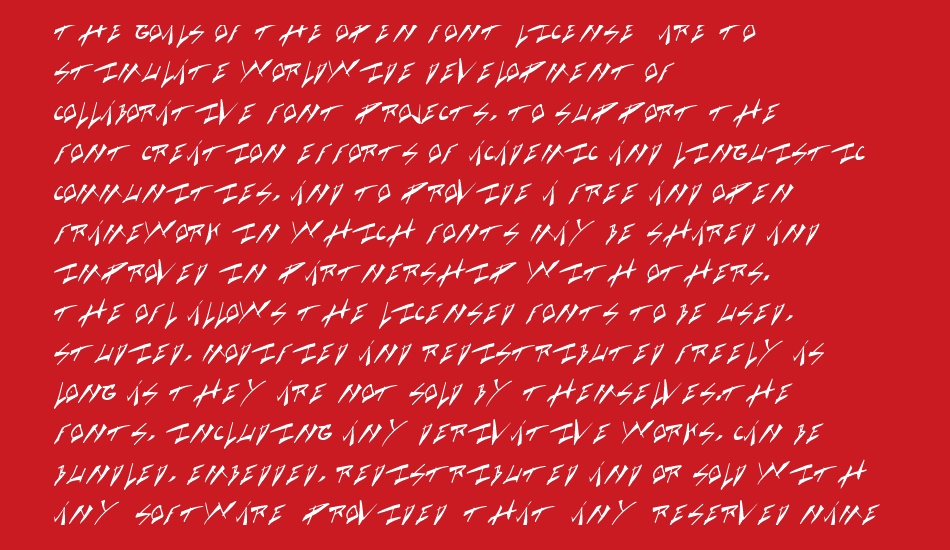 THE GOALS OF THE OPEN FONT LICENSE ARE TO
STIMULATE WORLDWIDE DEVELOPMENT OF
COLLABORATIVE FONT PROJECTS, TO SUPPORT THE
FONT CREATION EFFORTS OF ACADEMIC AND LINGUISTIC
COMMUNITIES, AND TO PROVIDE A FREE AND OPEN
FRAMEWORK IN WHICH FONTS MAY BE SHARED AND
IMPROVED IN PARTNERSHIP WITH OTHERS.
THE OFL ALLOWS THE LICENSED FONTS TO BE USED,
STUDIED, MODIFIED AND REDISTRIBUTED FREELY AS
LONG AS THEY ARE NOT SOLD BY THEMSELVES.THE
FONTS, INCLUDING ANY DERIVATIVE WORKS, CAN BE
BUNDLED, EMBEDDED, REDISTRIBUTED AND OR SOLD WITH
ANY SOFTWARE PROVIDED THAT ANY RESERVED NAME